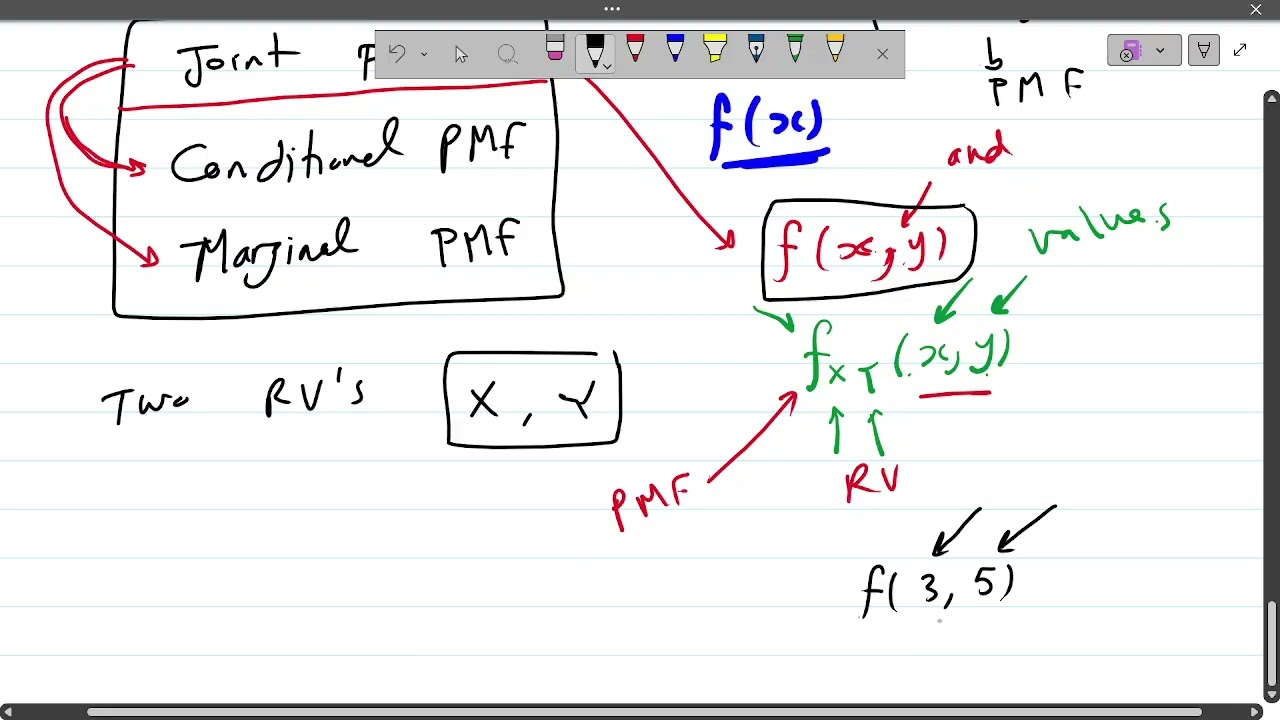 Joint
Conditional PMF
Marginal PMF
Two RV's X, Y
b
PMF
f(x)
and
f(x, y)
values
f_XY(x, y)
PMF
RV
f(3, 5)